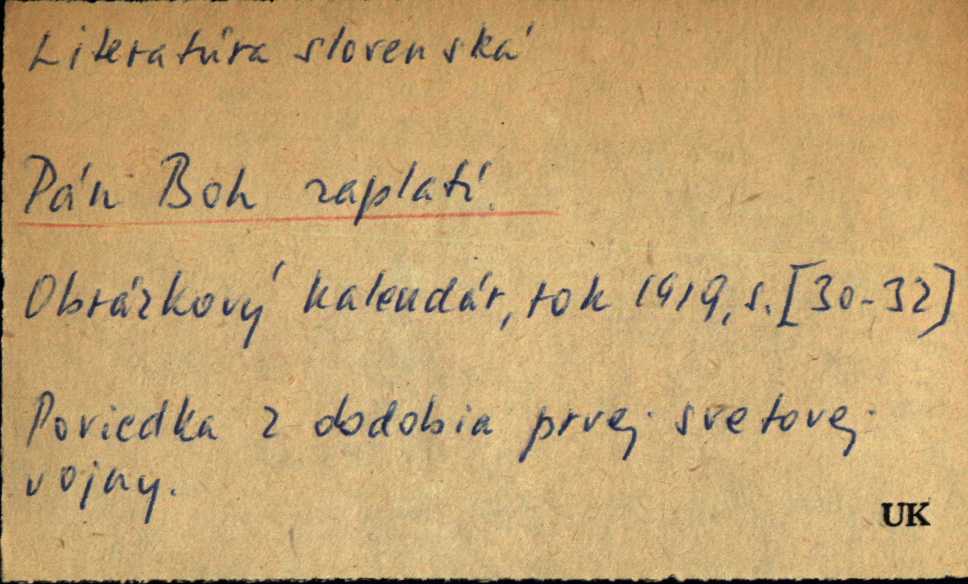 Literatúra slovenská
Pán Boh zaplatí.
Obrázkový kalendár, rok 1919, s. [30-32]
Poviedka z dodobia prvej svetovej
vojny.
UK